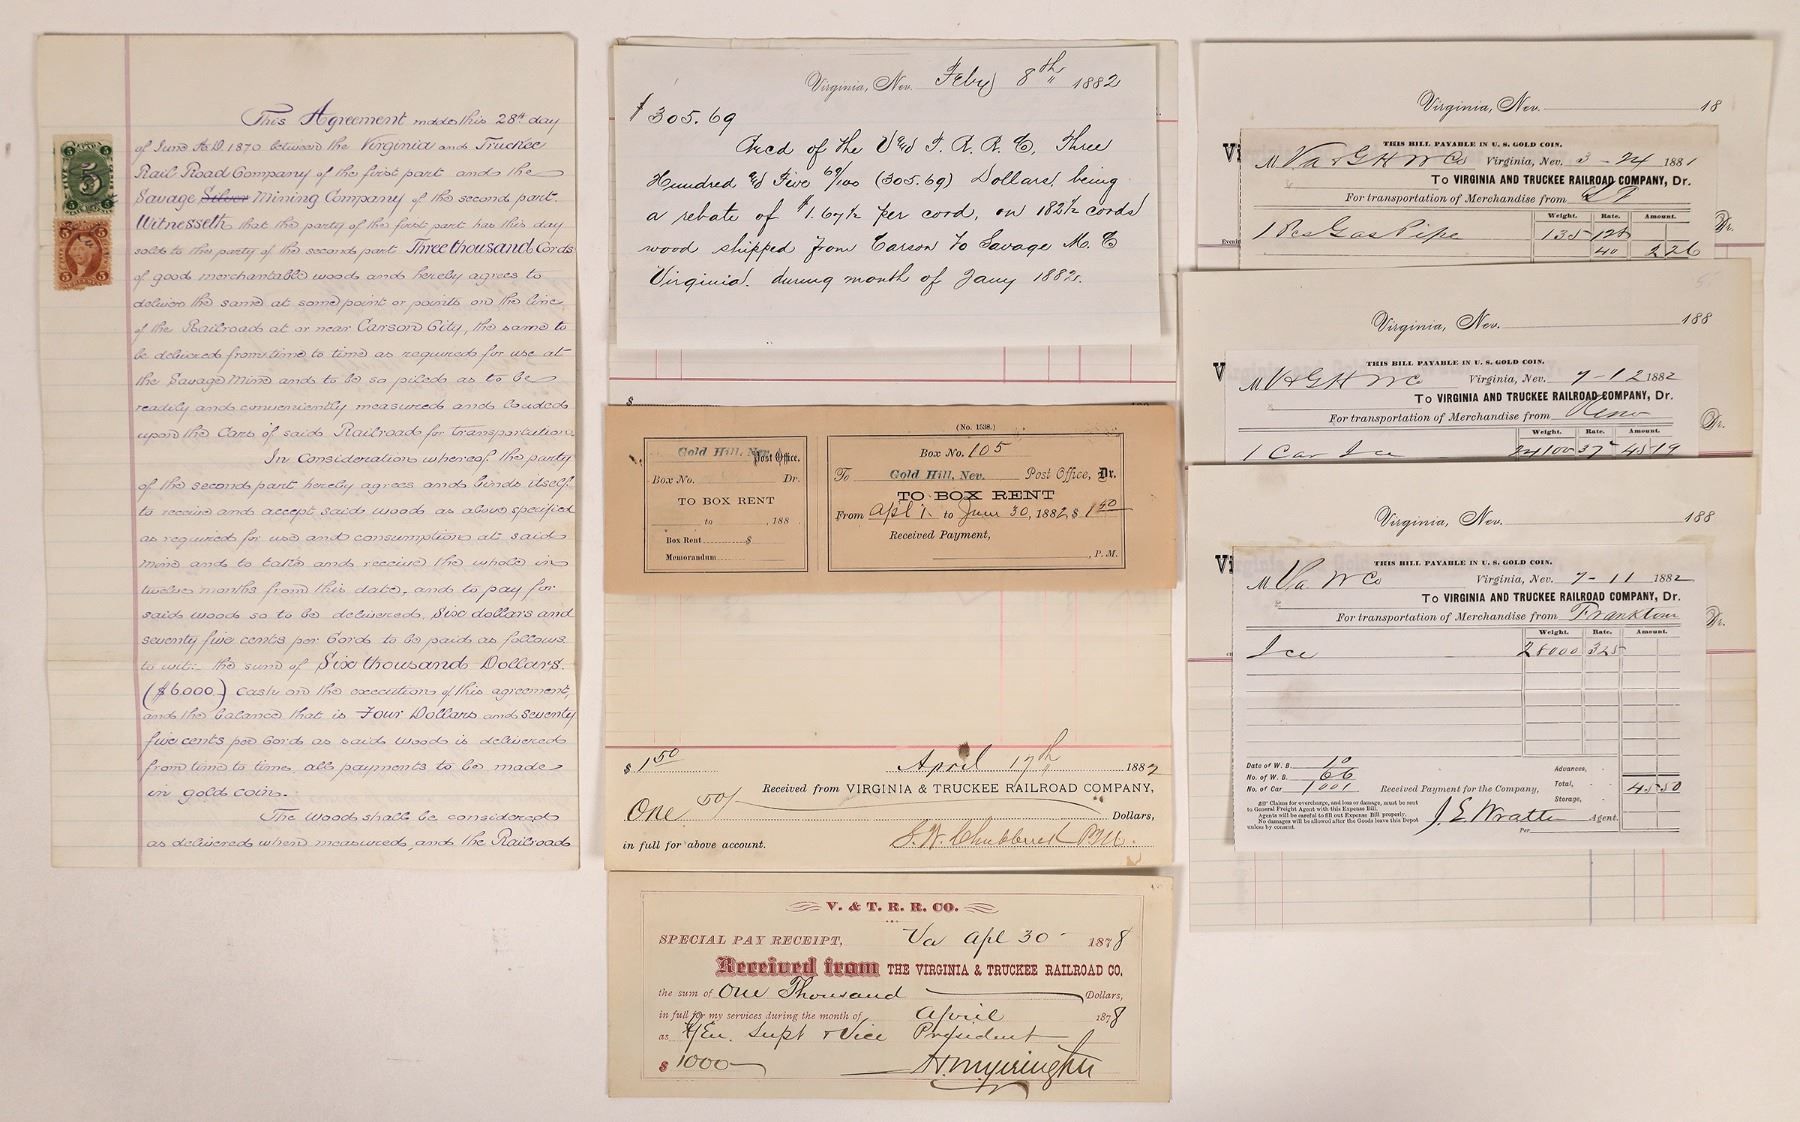 This Agreement made this 28th day
of June A.D. 1870 between the Virginia and Truckee
Rail Road Company of the first part and the
Savage Silver Mining Company of the second part.
Witnesseth that the party of the first part has this day
sold to the party of the second part Three thousand Cords
of good merchantable wood and hereby agrees to
deliver the same at some point or points on the line
of the Railroad at or near Carson City, the same to
be delivered from time to time as required for use at
the Savage Mine and to be so piled as to be
readily and conveniently measured and loaded
upon the Cars of said Railroad for transportation
In Consideration whereof the party
of the second part hereby agrees and binds itself
to receive and accept said wood as above specified
as required for use and consumption at said
mine and to take and receive the whole in
twelve months from this date, and to pay for
said wood so to be delivered, Six dollars and
seventy five cents per Cord to be paid as follows
to wit:- the sum of Six thousand Dollars.
($6000.) Cash on the execution of this agreement,
and the balance that is Four Dollars and seventy
five cents per Cord as said wood is delivered
from time to time, all payments to be made
in gold coin.
The wood shall be considered
as delivered when measured, and the Railroad
5
5
Virginia, Nev. Feby 8th 1882
$305.69
Recd of the V and T. R. R. Co, Three
Hundred and Five 69/100 (305.69) Dollars, being
a rebate of $1.67½ per cord, on 182½ cords
wood shipped from Carson to Savage M. Co
Virginia. during month of Jany 1882.
$
Gold Hill, Nev. Post Office.
Box No. Dr.
TO BOX RENT
to , 188
Box Rent $
Memorandum
(No. 1538.)
Box No. 105
To Gold Hill, Nev. Post Office, Dr.
TO BOX RENT
From Apl 1. to June 30, 1882 $ 1.50
Received Payment,
, P. M.
$ 1 50 April 17th 1882
Received from VIRGINIA & TRUCKEE RAILROAD COMPANY,
One 50/ Dollars,
in full for above account. S. W. Chubbuck P.M.
V. & T. R. R. CO.
SPECIAL PAY RECEIPT, Va Apl 30 1878
Received from THE VIRGINIA & TRUCKEE RAILROAD CO.
the sum of One Thousand Dollars,
in full for my services during the month of April 1878
as Gen. Supt & Vice President
$ 1000 H M Yerington
Virginia, Nev. 18
THIS BILL PAYABLE IN U. S. GOLD COIN.
M Va & G H W Co Virginia, Nev. 3-24 1881
To VIRGINIA AND TRUCKEE RAILROAD COMPANY, Dr.
For transportation of Merchandise from
Weight. Rate. Amount.
1 Pcs Gas Pipe 135 128
40 226
Dr.
Virginia, Nev. 188
THIS BILL PAYABLE IN U. S. GOLD COIN.
M V & G H W Co Virginia, Nev. 7-12 1882
To VIRGINIA AND TRUCKEE RAILROAD COMPANY, Dr.
For transportation of Merchandise from Reno
Weight. Rate. Amount.
1 Car Ice 24100 37 45 19
Dr.
Virginia, Nev. 188
THIS BILL PAYABLE IN U. S. GOLD COIN.
M Va W Co Virginia, Nev. 7-11 1882
To VIRGINIA AND TRUCKEE RAILROAD COMPANY, Dr.
For transportation of Merchandise from Franktown
Weight. Rate. Amount.
Ice 28000 325
Dr.
Date of W. B. 10
No. of W. B. 66
No. of Car 1001
Advances,
Received Payment for the Company, Total, 45 50
Storage,
Claims for overcharge, and loss or damage, must be sent
to General Freight Agent with this Expense Bill.
Agents will be careful to fill out Expense Bill properly.
No damages will be allowed after the Goods leave this Depot
unless by consent.
J. E. Wratten Agent.
Per